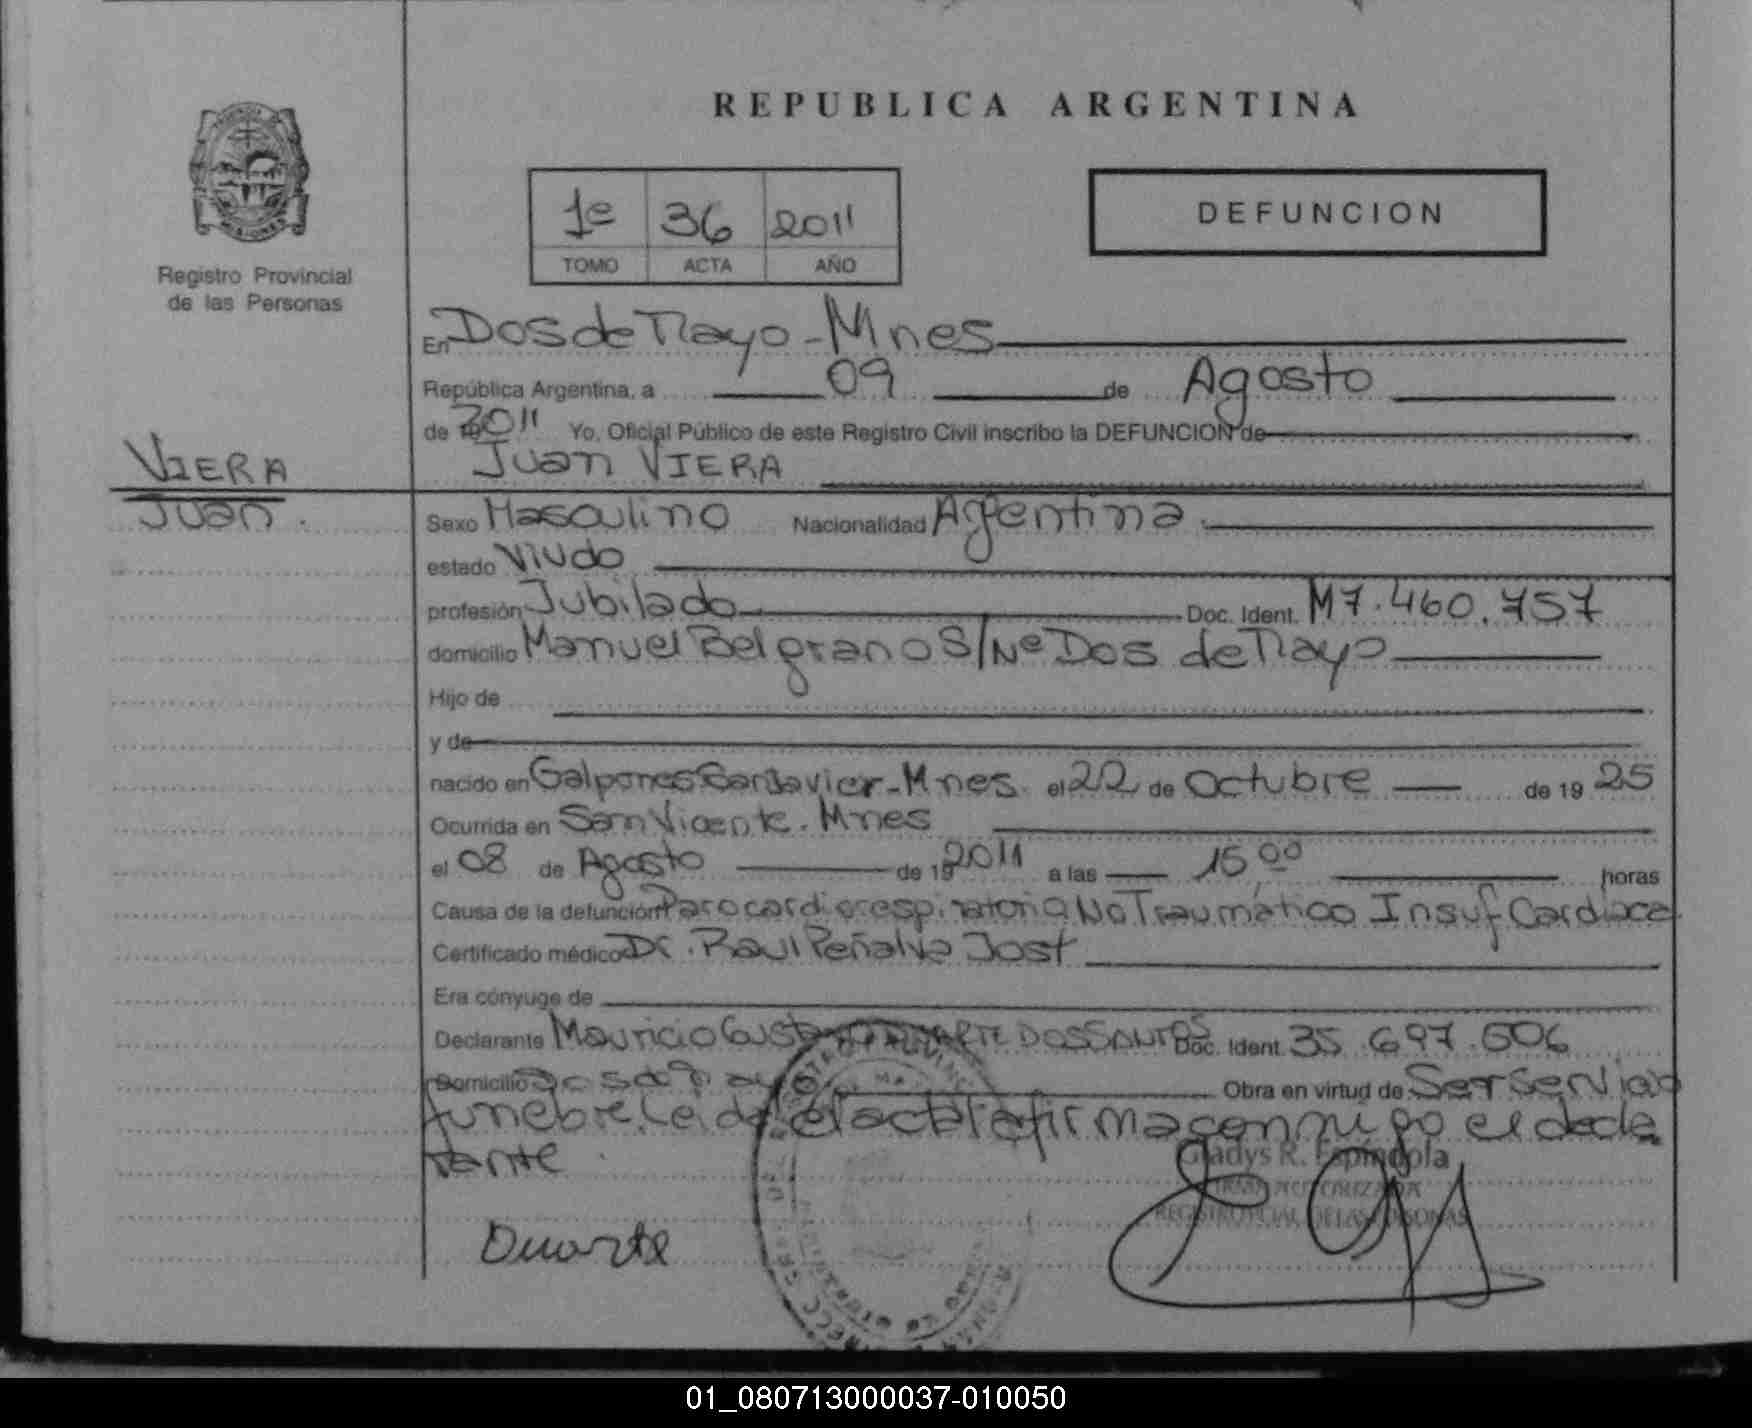 REPUBLICA ARGENTINA
1º 36 2011
TOMO ACTA AÑO
DEFUNCION
Registro Provincial
de las Personas
En Dos de Mayo - Mnes
República Argentina, a 09 de Agosto
de 2011 Yo, Oficial Público de este Registro Civil inscribo la DEFUNCION de
Juan VIERA
VIERA
Juan.
Sexo Masculino Nacionalidad Argentina.
estado Viudo
profesión Jubilado Doc. Ident. M7.460.757
domicilio Manuel Belgrano S/Nº Dos de Mayo
Hijo de
y de
nacido en Galpones San Javier - Mnes. el 22 de Octubre de 1925
Ocurrida en San Vicente. Mnes
el 08 de Agosto de 19 2011 a las 15,00 horas
Causa de la defunción Paro cardiorespiratorio No Traumático Insuf Cardiaca
Certificado médico Dr. Raul Peñalva Jost
Era cónyuge de
Declarante Mauricio DUARTE DOS SANTOS Doc. Ident. 35.697.506
Domicilio Dos de Mayo Obra en virtud de Ser Servicio
funebre. Leida el acta la firma conmigo el decla
rante.
Gladys R. Espindola
FIRMA AUTORIZADA
REGISTRO PROVINCIAL DE LAS PERSONAS
Duarte
01_080713000037-010050